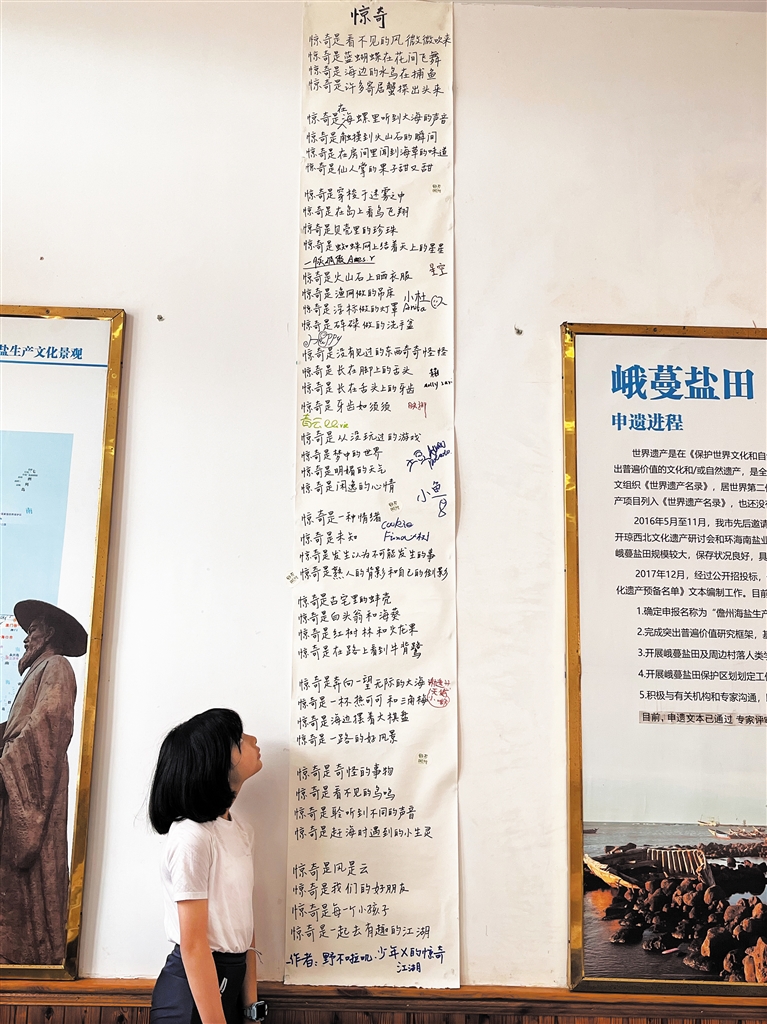 惊奇
惊奇是看不见的风微微吹来
惊奇是蓝蝴蝶在花间飞舞
惊奇是海边的水鸟在捕鱼
惊奇是许多寄居蟹探出头来
惊奇是在海螺里听到大海的声音
惊奇是触摸到火山石的瞬间
惊奇是在房间里闻到海草的味道
惊奇是仙人掌的果子甜又甜
惊奇是穿梭于迷雾之中
惊奇是在岛上看鸟飞翔
惊奇是贝壳里的珍珠
惊奇是蜘蛛网上结着天上的星星
星空
惊奇是火山石上晒衣服
惊奇是渔网做的吊床
小杜
Anita
惊奇是浮标做的灯罩
惊奇是砗磲做的洗手盆
惊奇是没有见过的东西奇奇怪怪
惊奇是长在脚上的舌头
惊奇是长在舌头上的牙齿
惊奇是牙齿如须须
惊奇是从没玩过的游戏
惊奇是梦中的世界
惊奇是明媚的天气
惊奇是闲逸的心情
小鱼
惊奇是一种情绪
cookie
惊奇是未知
Fina
惊奇是发生认为不可能发生的事
惊奇是熟人的背影和自己的倒影
惊奇是古宅里的蚌壳
惊奇是白头翁和海葵
惊奇是红树林和火龙果
惊奇是在路上看到牛背鹭
惊奇是奔向一望无际的大海
惊奇是一杯热可可和三角梅
惊奇是海边摆着大棋盘
惊奇是一路的好风景
惊奇是奇怪的事物
惊奇是看不见的鸟鸣
惊奇是聆听到不同的声音
惊奇是赶海时遇到的小生灵
惊奇是风是云
惊奇是我们的好朋友
惊奇是每一个小孩子
惊奇是一起去有趣的江湖
作者：野不啦叽·少年X的惊奇
江湖
盐生产文化景观
峨蔓盐田
申遗进程
世界遗产是在《保护世界文化和自
出普遍价值的文化和/或自然遗产，是全
文组织《世界遗产名录》，居世界第二位
产项目列入《世界遗产名录》，也还没有
2016年5月至11月，我市先后邀请
开琼西北文化遗产研讨会和环海南盐业
峨蔓盐田规模较大，保存状况良好，具
2017年12月，经过公开招投标，
化遗产预备名单》文本编制工作。目前
1.确定申报名称为“儋州海盐生产
2.完成突出普遍价值研究框架，基
3.开展峨蔓盐田及周边村落人类学
4.开展峨蔓盐田保护区划划定工作
5.积极与有关机构和专家沟通，
目前，申遗文本已通过 专家评审